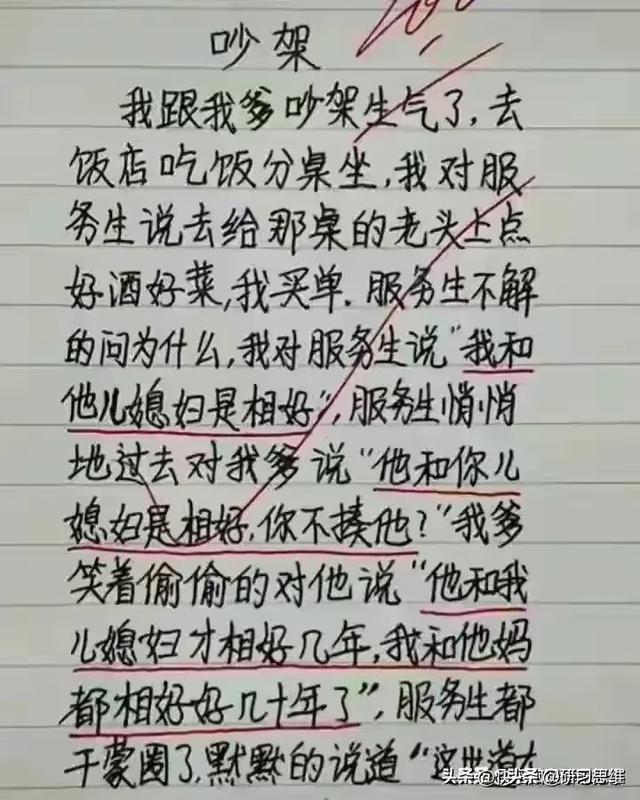 吵架
我跟我爹吵架生气了,去
饭店吃饭分桌坐,我对服
务生说去给那桌的老头上点
好酒好菜,我买单.服务生不解
的问为什么,我对服务生说"我和
他儿媳妇是相好",服务生悄悄
地过去对我爹说"他和你儿
媳妇是相好,你不揍他?"我爹
笑着偷偷的对他说"他和我
儿媳妇才相好几年,我和他妈
都相好好几十年了",服务生都
干蒙圈了,默默的说道"这
头条 @研习思维